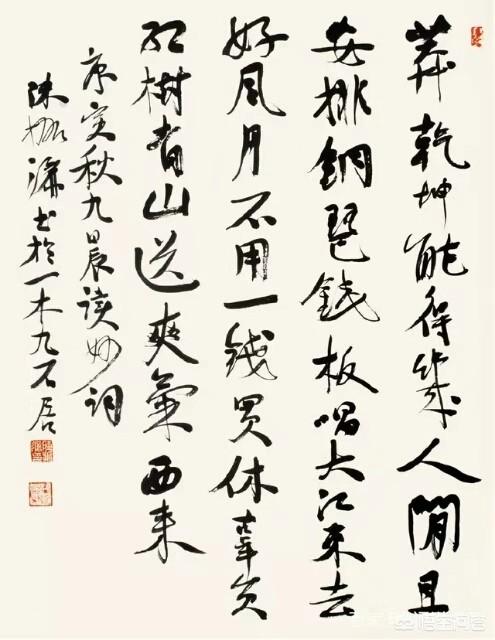 莽乾坤能得幾人閒且
安排銅琶鐵板唱大江東去
好風月不用一錢買休辜負
紅樹青山送爽氣西来
庚寅秋九晨读妙词
陳振濂书於一木九石居
悟空问答